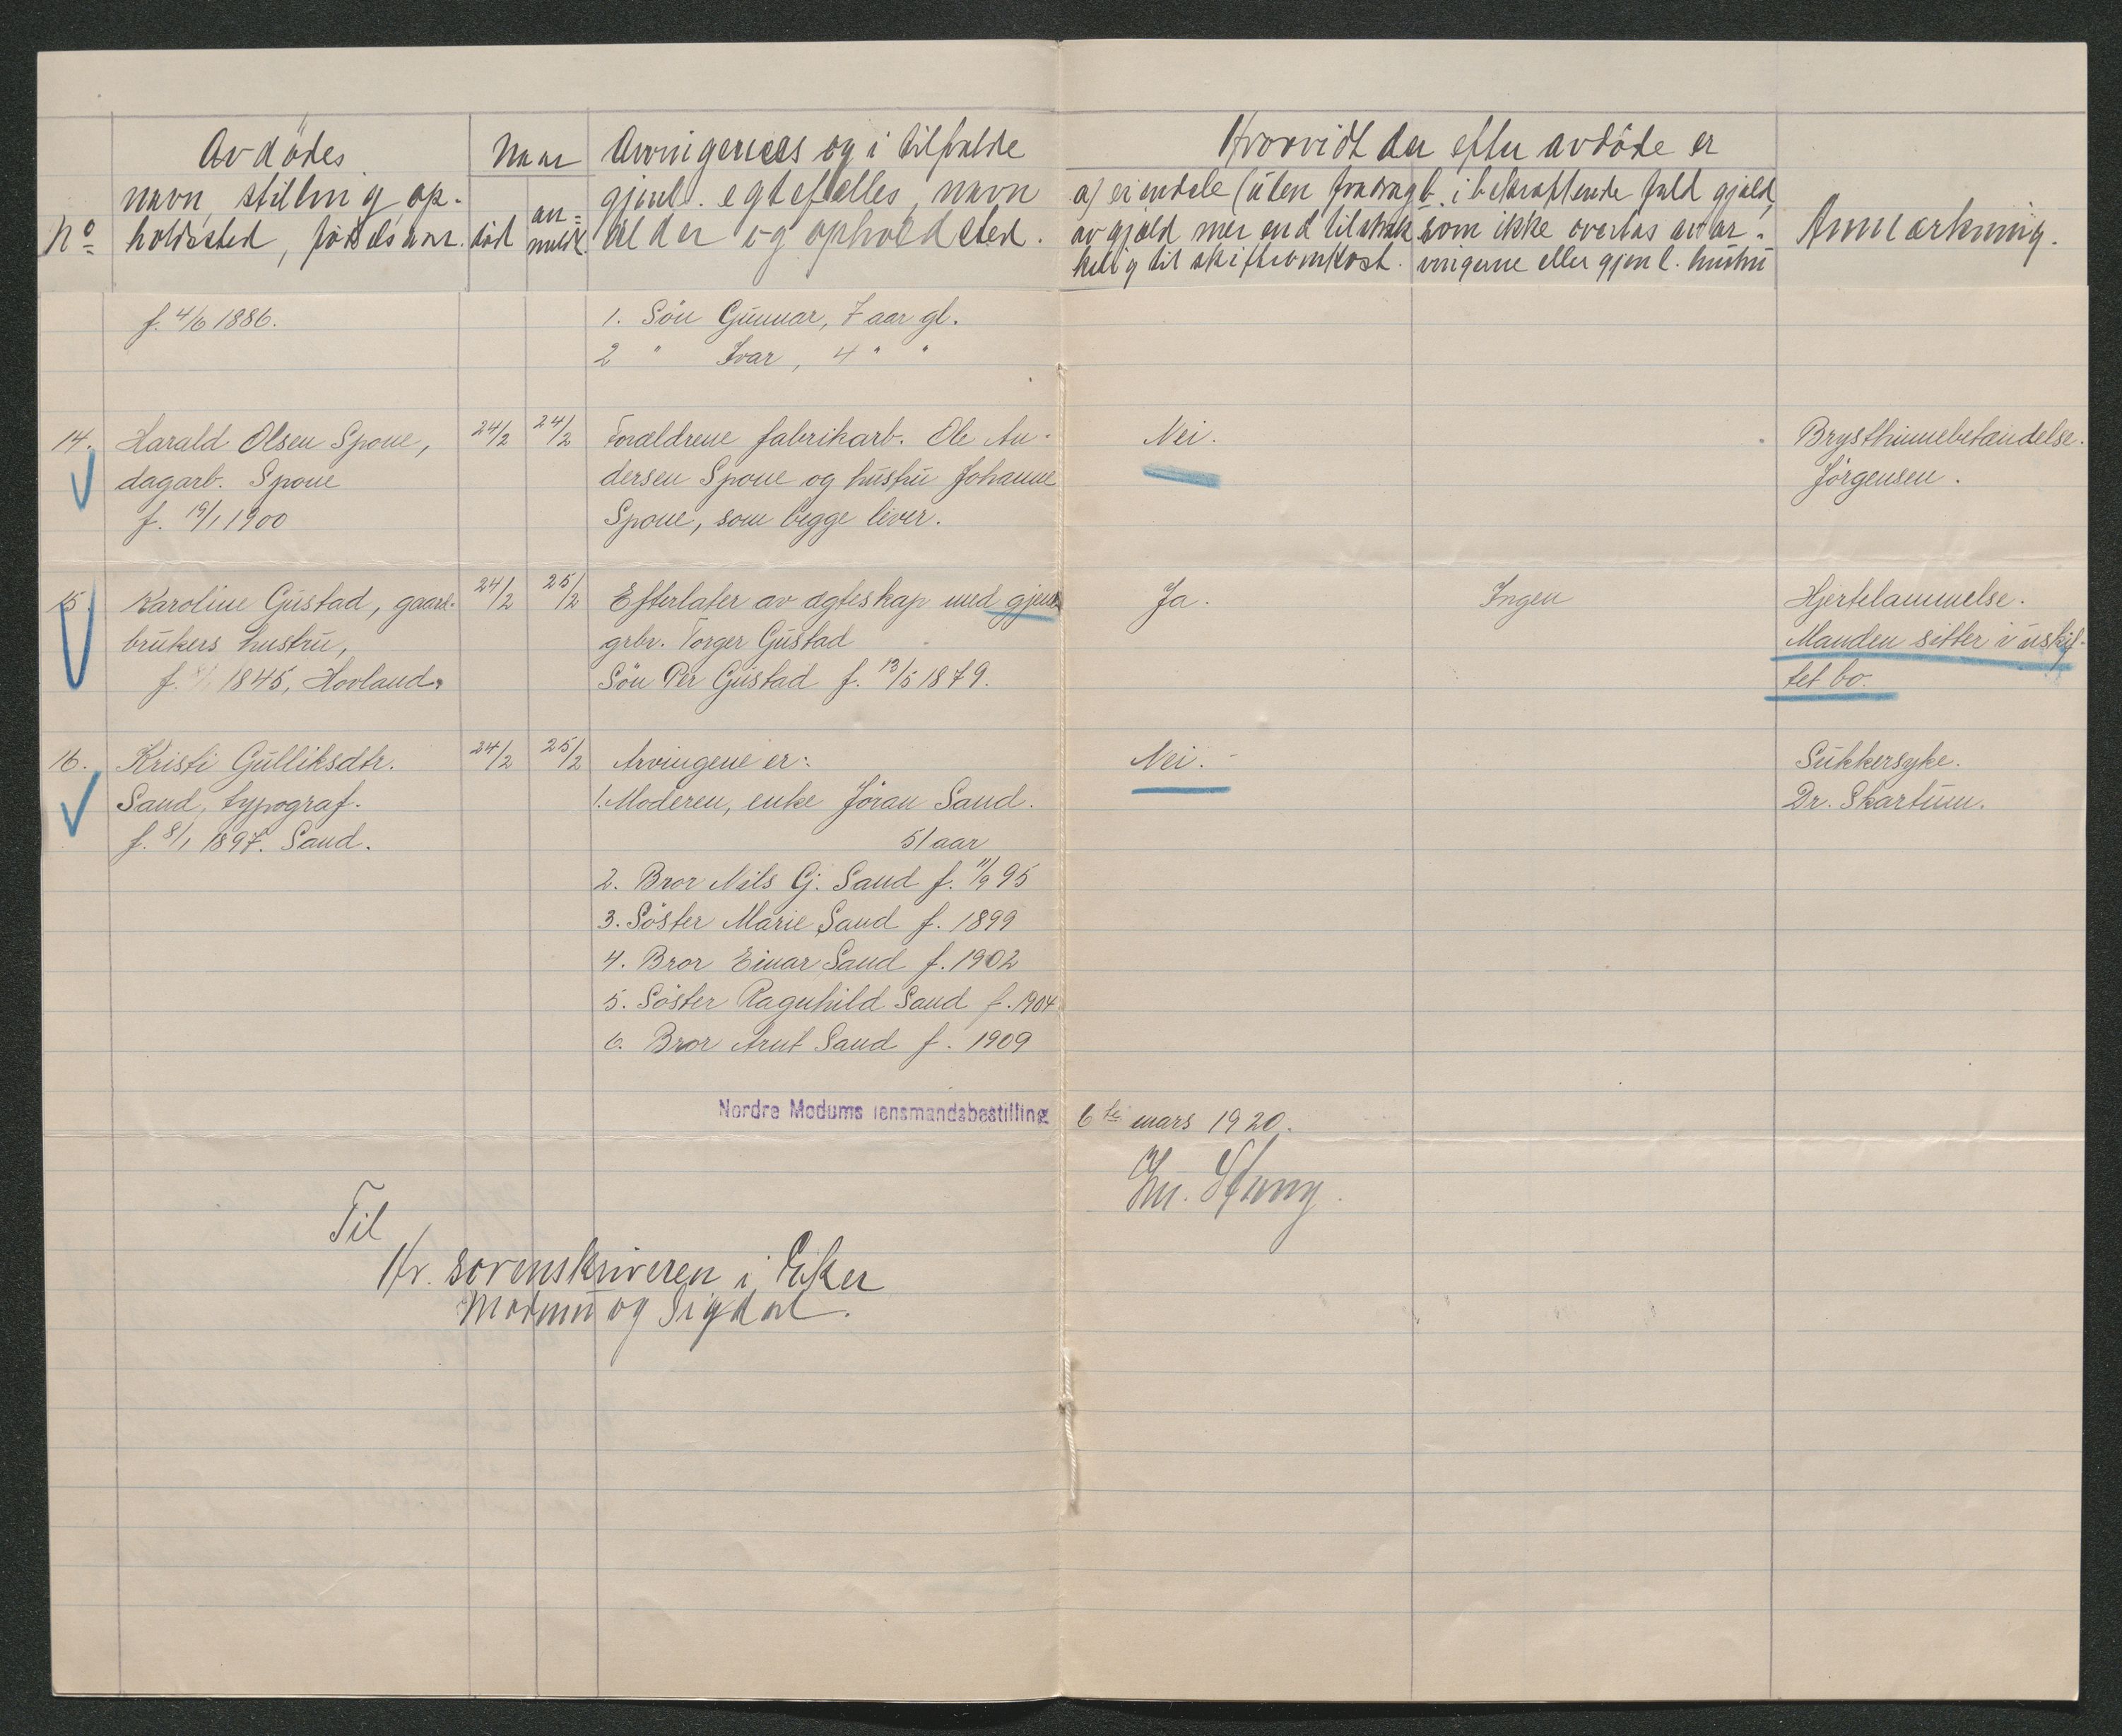 Avdödes
navn, stilling, op-
No holdssted, födselsaar.
Naar
död
an-
meldt.
Arvingernes og i tilfælde
gjenl. egtefælles navn
alder og opholdssted.
Hvorvidt der efter avdöde er
a) eiendele (uten fradrag
av gjæld mer end tilstræk
kelig til skifteomkost.
b. i bekræftende fald gjæld,
som ikke overtas av ar-
vingerne eller gjenl. hustru
Anmærkning.
f. 4/6 1886.
1. Sön Gunnar, 7 aar gl.
2 " Ivar, 4 " "
14. Harald Olsen Spone,
dagarb. Spone
f. 19/1 1900
24/2 24/2
Forældrene fabrikarb. Ole An-
dersen Spone og hustru Johanne
Spone, som begge lever.
Nei.
Brysthinnebetændelse.
Jörgensen.
15. Karoline Gustad, gaard-
brukers hustru,
f. 1845, Hovland.
24/2 25/2
Efterlater av ægteskap med gjenl.
grbr. Torger Gustad
Sön Per Gustad f. 13/5 1879.
Ja.
Ingen
Hjertelammelse.
Manden sitter i uskif-
tet bo.
16. Kristi Gulliksdtr.
Sand, typograf.
f. 8/1 1897. Sand.
24/2 25/2
Arvingene er:
1. Moderen, enke Jöran Sand.
51 aar
2. Bror Nils G. Sand f. 11/9 95
3. Söster Marie Sand f. 1899
4. Bror Einar Sand f. 1902
5. Söster Ragnhild Sand f. 1904
6. Bror Arnt Sand f. 1909
Nei. -
Sukkersyke.
Dr. Skartum.
Nordre Modums lensmandsbestilling 6te mars 1920.
Til
Hr. sorenskriveren i Eiker
Modum og Sigdal.